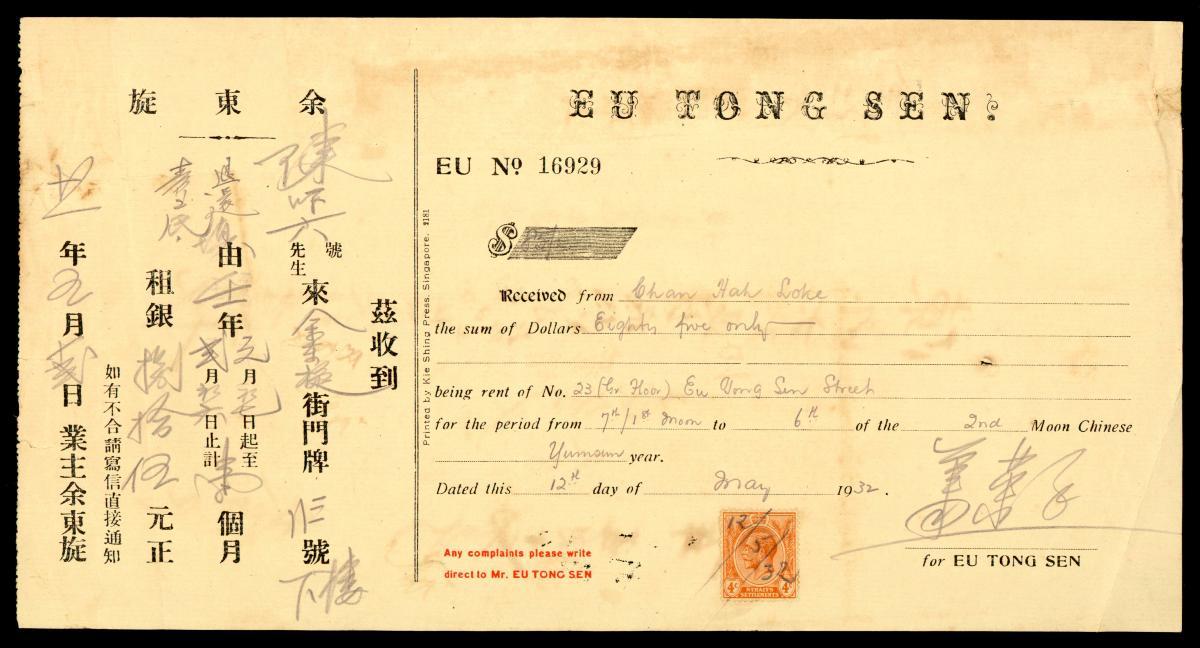 余東旋
茲收到
陳
號
先生
來
街門牌
號
下樓
由壬年
元月
日起至
弍月
日止計
個月
租銀捌拾伍元正
如有不合請寫信直接通知
年五月
日業主余東旋
EU TONG SEN.
EU No 16929
$ 85/-
Received from Chan Hah Loke
the sum of Dollars Eighty five only
being rent of No. 23 (Gr Floor) Eu Tong Sen Street
for the period from 7th/1st Moon to 6th of the 2nd Moon Chinese
Yumsun year.
Dated this 12th day of May 1932.
Any complaints please write
direct to Mr. EU TONG SEN
12/5/32
4c STRAITS SETTLEMENTS 4c
for EU TONG SEN
Printed by Kie Shing Press, Singapore. 1181